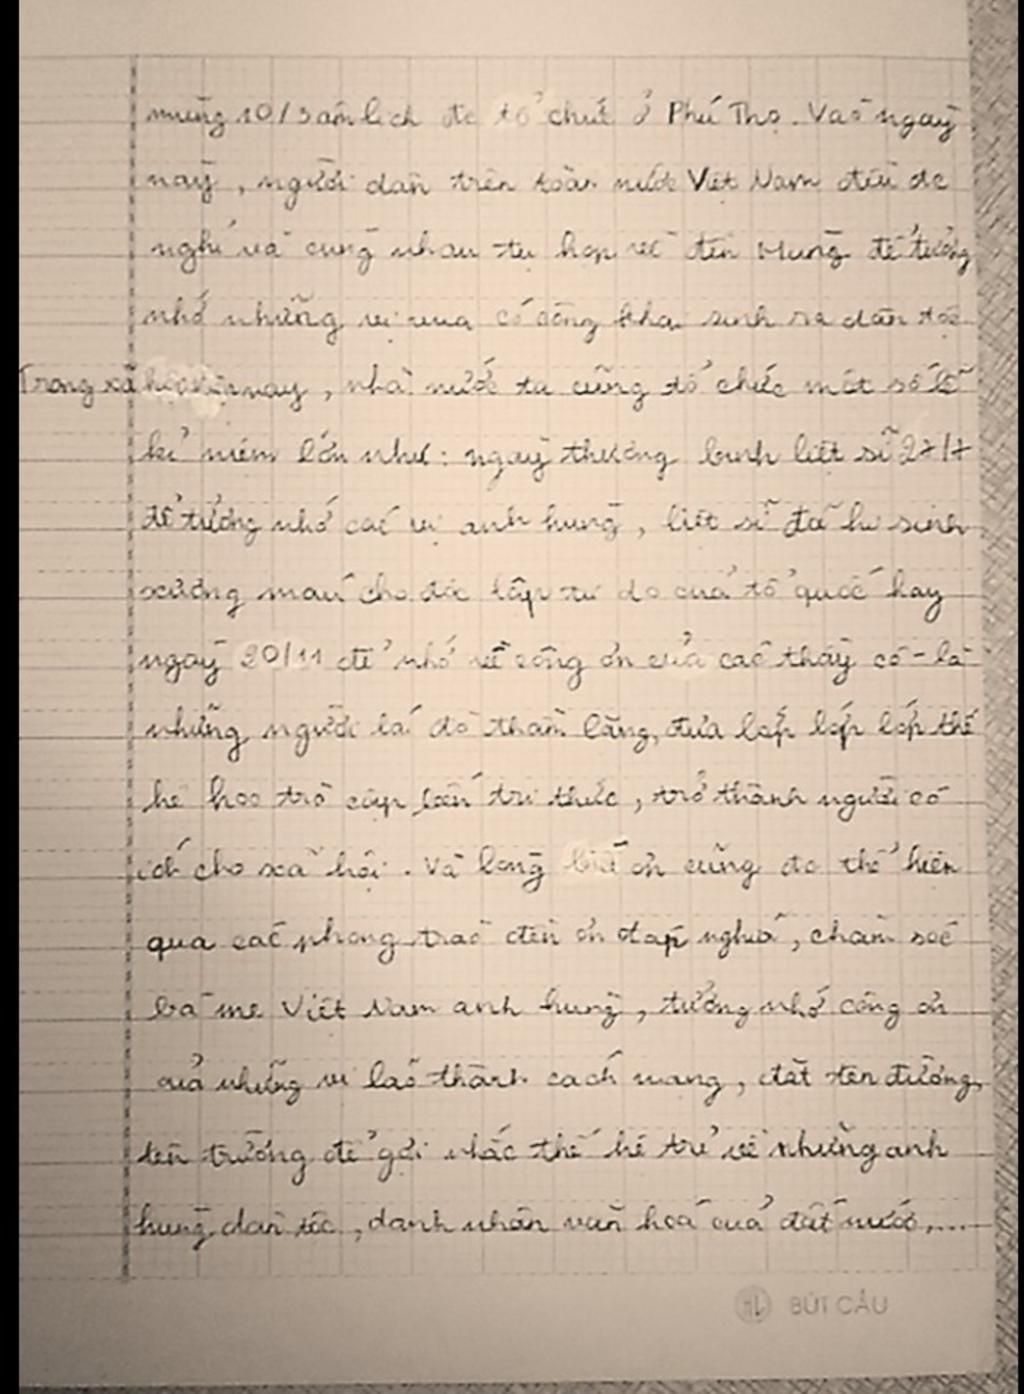 mùng 10/3 âm lịch đc tổ chức ở Phú Thọ. Vào ngày
này, người dân trên toàn nước Việt Nam đều đc
nghỉ và cùng nhau tụ họp về đền Hùng để tưởng
nhớ những vị vua có công khai sinh ra dân tộc
Trong xã hội hiện nay, nhà nước ta cũng tổ chức một số lễ
kỉ niệm lớn như: ngày thương binh liệt sĩ 27/7
để tưởng nhớ các vị anh hùng, liệt sĩ đã hi sinh
xương máu cho độc lập tự do của tổ quốc hay
ngày 20/11 để nhớ về công ơn của các thầy cô - là
những người lái đò thầm lặng, đưa lớp lớp lớp thế
hệ học trò cập bến tri thức, trở thành người có
ích cho xã hội. Và lòng biết ơn cũng đc thể hiện
qua các phong trào đền ơn đáp nghĩa, chăm sóc
bà mẹ Việt Nam anh hùng, tưởng nhớ công ơn
của những vị lão thành cách mạng, đặt tên đường,
tên trường để gợi nhắc thế hệ trẻ về những anh
hùng dân tộc, danh nhân văn hoá của đất nước,...
HL BÚT CÂU